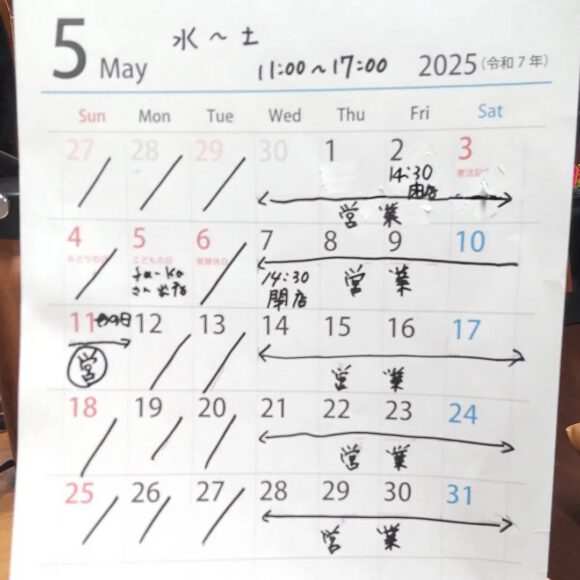 5 May 水～土
11:00～17:00 2025(令和7年)
Sun Mon Tue Wed Thu Fri Sat
27 28 29 30 1 2 3
14:30
閉店
営業
4 5 6 7 8 9 10
みどりの日 こどもの日 振替休日
さん
14:30
閉店
営業
11 12 13 14 15 16 17
営
営業
18 19 20 21 22 23 24
営業
25 26 27 28 29 30 31
営業